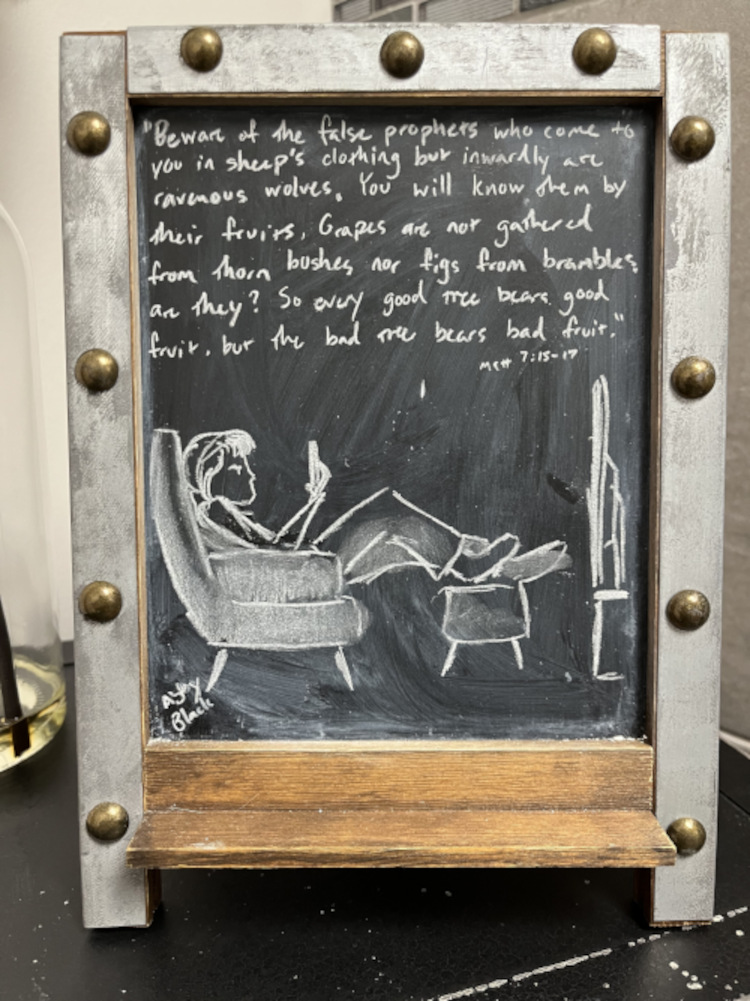 "Beware of the false prophets who come to
you in sheep's clothing but inwardly are
ravenous wolves. You will know them by
their fruits. Grapes are not gathered
from thorn bushes nor figs from brambles
are they? So every good tree bears good
fruit, but the bad tree bears bad fruit."
Matt 7:15-17
Black